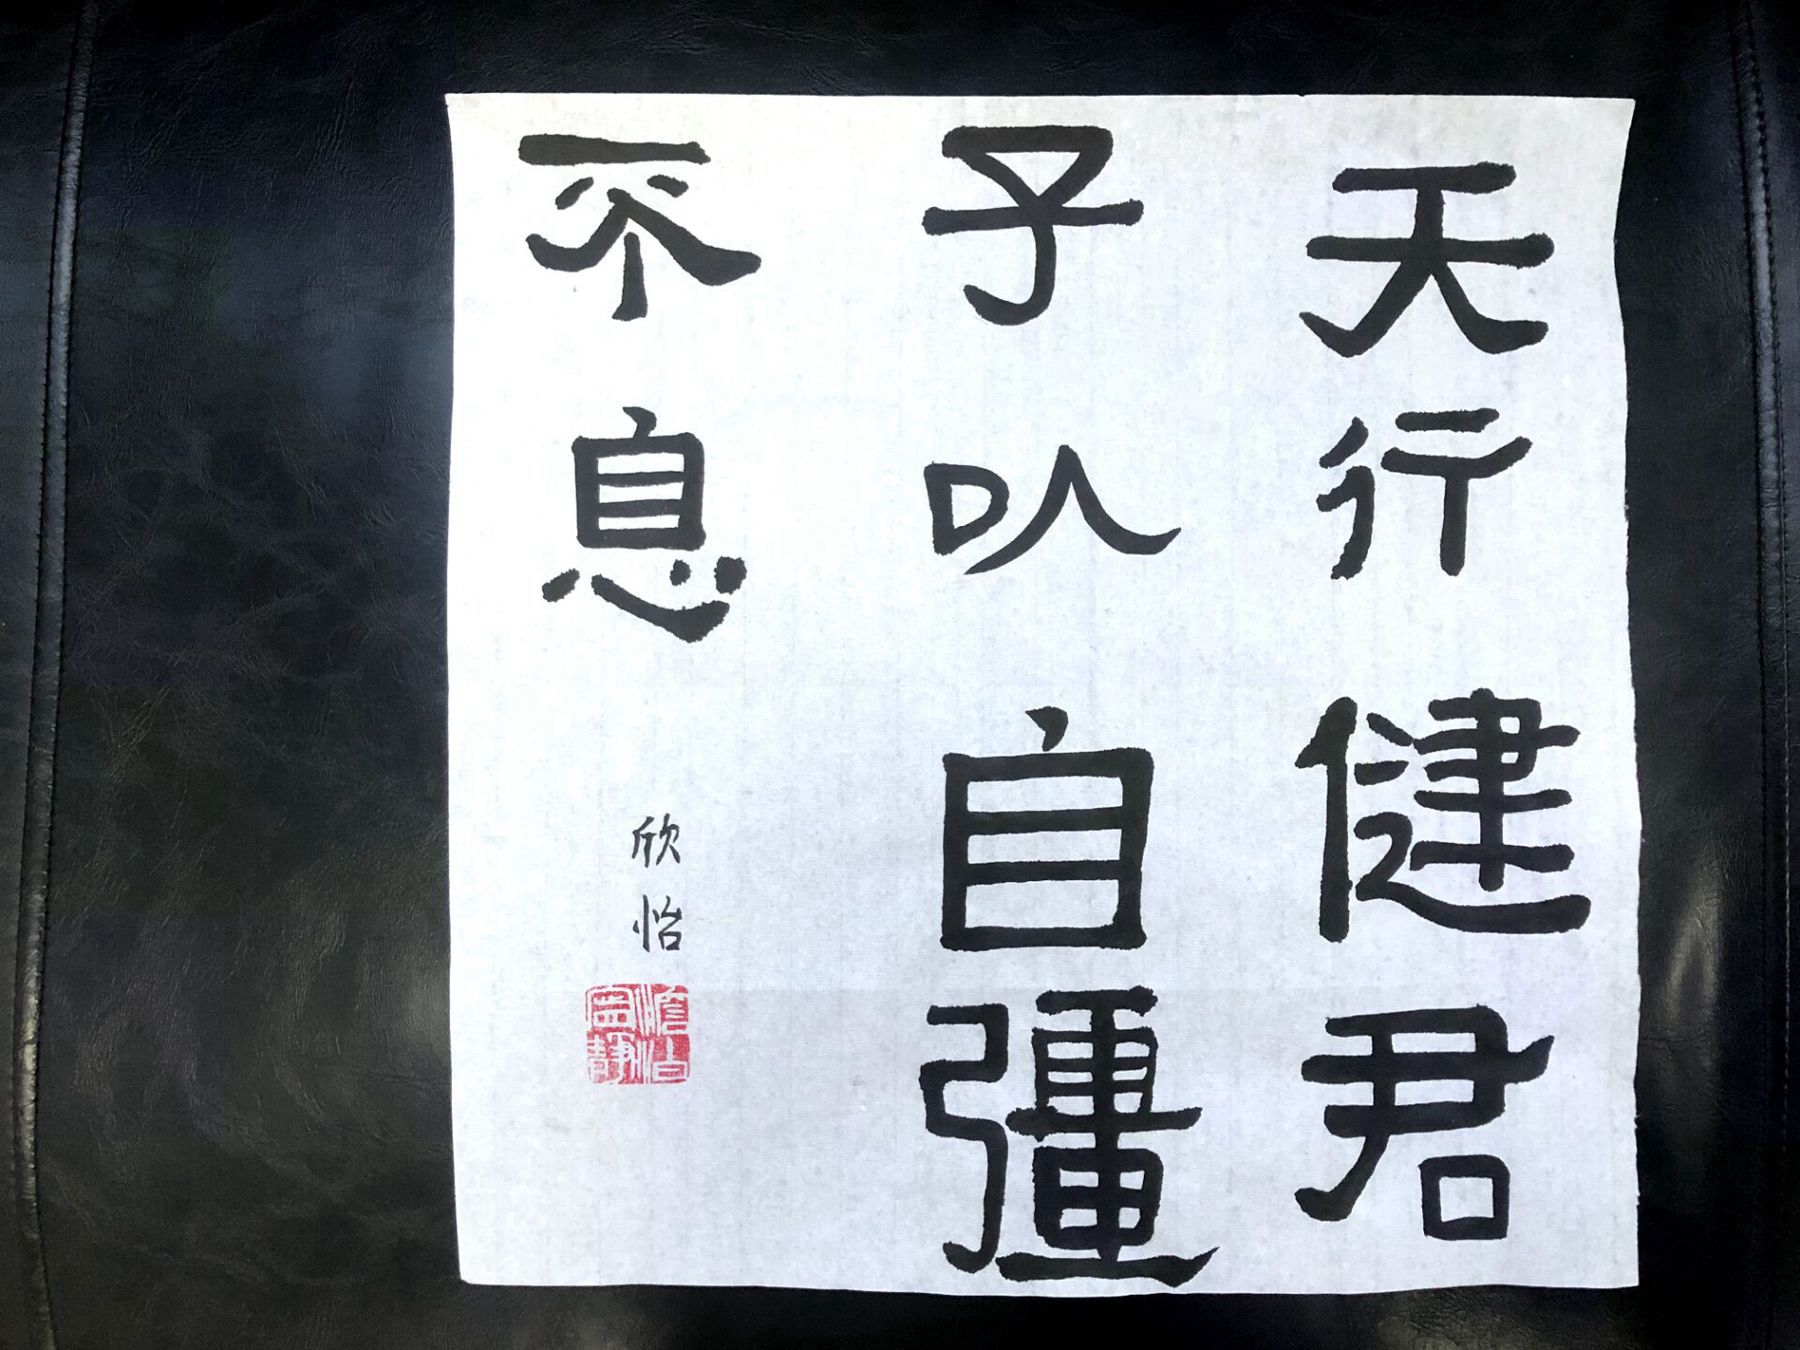 天行健君
子以自彊
不息
欣怡